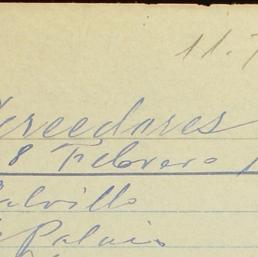 11.7
Acreedores
8 Febrero
Calvillo
Palais